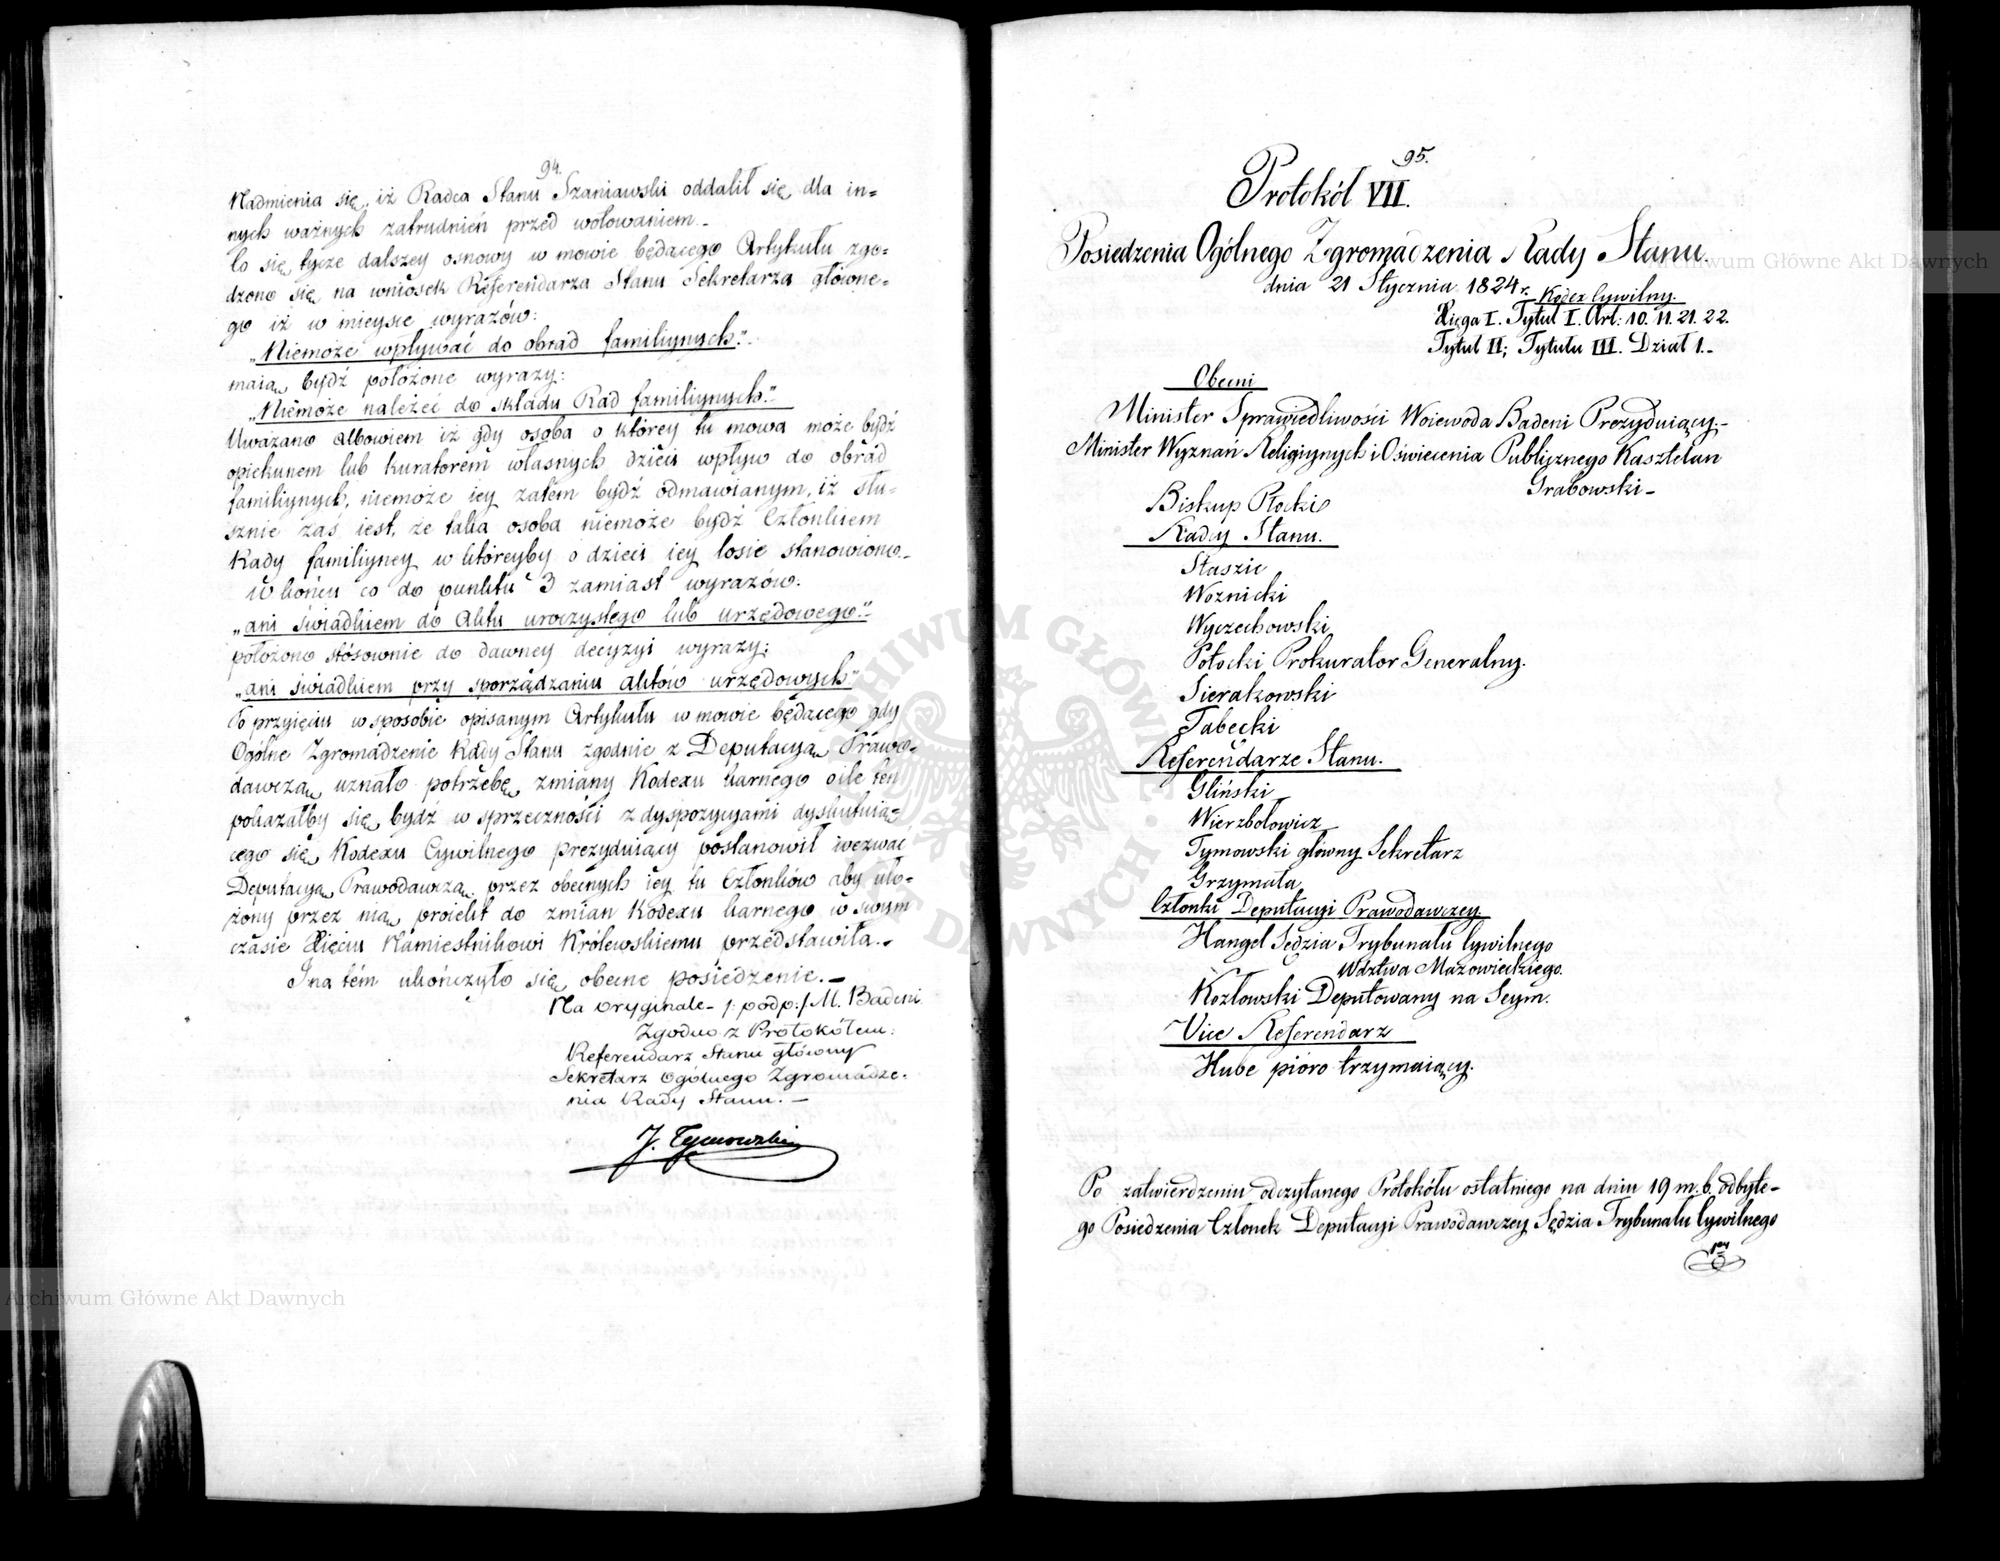 94.
Nadmienia się, iż Radca Stanu Szaniawski oddalił się dla in=
nych ważnych zatrudnień przed wotowaniem.-
Co się tycze dalszey osnowy w mowie będącego Artykułu zgo-
dzono się na wniosek Referendarza Stanu Sekretarza główne-
go iż w mieysce wyrazów:
„Niemoże wpływać do obrad familiynych".-
maią bydź położone wyrazy:
„Niemoże należeć do składu Rad familiynych"-
Uważano albowiem iż gdy osoba o którey tu mowa może bydź
opiekunem lub kuratorem własnych dzieci wpływ do obrad
familiynych, niemoże iey zatem bydź odmawianym, iż słu-
sznie zaś iest, że taka osoba niemoże bydź Członkiem
Rady familiyney w któreyby o dzieci iey losie stanowiono.-
W końcu co do punktu 3 zamiast wyrazów:
„ani świadkiem do Aktu uroczystego lub urzędowego"-
położono stósownie do dawney decyzyi wyrazy:
„ani świadkiem przy sporządzaniu aktów urzędowych"
Po przyięciu w sposobie opisanym Artykułu w mowie będącego gdy
Ogólne Zgromadzenie Rady Stanu zgodnie z Deputacyą Prawo-
dawczą uznało potrzebę zmiany Kodexu karnego oile ten
pokazałby się bydź w sprzeczności z dyspozycyami dyskutuią-
cego się Kodexu Cywilnego prezyduiący postanowił wezwać
Deputacyą Prawodawczą przez obecnych iey tu Członków aby uło-
żony przez nią proiekt do zmian Kodexu karnego w swym
czasie Xięciu Namiestnikowi Królewskiemu przedstawiła.-
I na tém ukończyło się obecne posiedzenie.-
Na oryginale - /: podp:/ M. Badeni
Zgodno z Protokółem:
Referendarz Stanu główny
Sekretarz Ogólnego Zgromadze-
nia Rady Stanu.-
J. Tymowski
95.
Protokół VII.
Posiedzenia Ogólnego Zgromadzenia Rady Stanu
dnia 21 Stycznia 1824 r. Kodex Cywilny.
Xięga I. Tytuł I. Art: 10. 11. 21. 22.
Tytuł II; Tytułu III. Dział 1.-
Obecni
Minister Sprawiedliwości Woiewoda Badeni Prezyduiący.-
Minister Wyznań Religiynych i Oświecenia Publicznego Kasztelan
Grabowski -
Biskup Płocki
Radcy Stanu.
Staszic
Woznicki
Wyczechowski
Potocki Prokurator Generalny.
Sierakowski
Tabęcki
Referendarze Stanu.
Gliński
Wierzbołowicz
Tymowski główny Sekretarz
Grzymała
Członki Deputacyi Prawodawczey
Hangel Sędzia Trybunału Cywilnego
Wdztwa Mazowieckiego.
Kozłowski Deputowany na Seym.
Vice Referendarz
Hube pióro trzymaiący.
Po zatwierdzeniu odczytanego Protokółu ostatniego na dniu 19 m. b. odbyte-
go Posiedzenia Członek Deputacyi Prawodawczey Sędzia Trybunału Cywilnego
Archiwum Główne Akt Dawnych
Archiwum Główne Akt Dawnych
ARCHIWUM GŁÓWNE AKT DAWNYCH